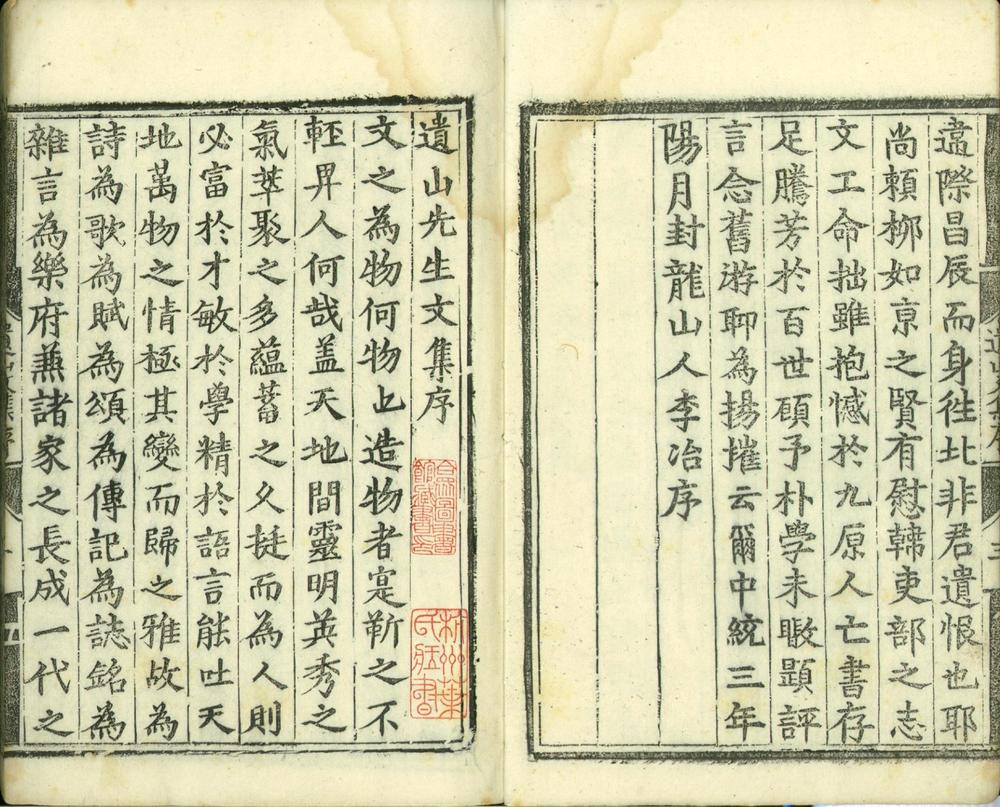 盍際昌辰而身徃北非君遺恨也耶
尚頼栁如亰之賢有慰韓吏部之志
文工命拙雖抱憾於九原人亡書存
足騰芳於百世碩予朴學未敢題評
言念舊游聊為揚搉云爾中統三年
陽月封龍山人李冶序
遺山先生文集序
文之為物何物也造物者寔靳之不
輕畀人何哉盖天地間靈明英秀之
氣萃聚之多蘊蓄之久挺而為人則
必富於才敏於學精於語言能吐天
地萬物之情極其變而歸之雅故為
詩為歌為賦為頌為傳記為誌銘為
雜言為樂府兼諸家之長成一代之